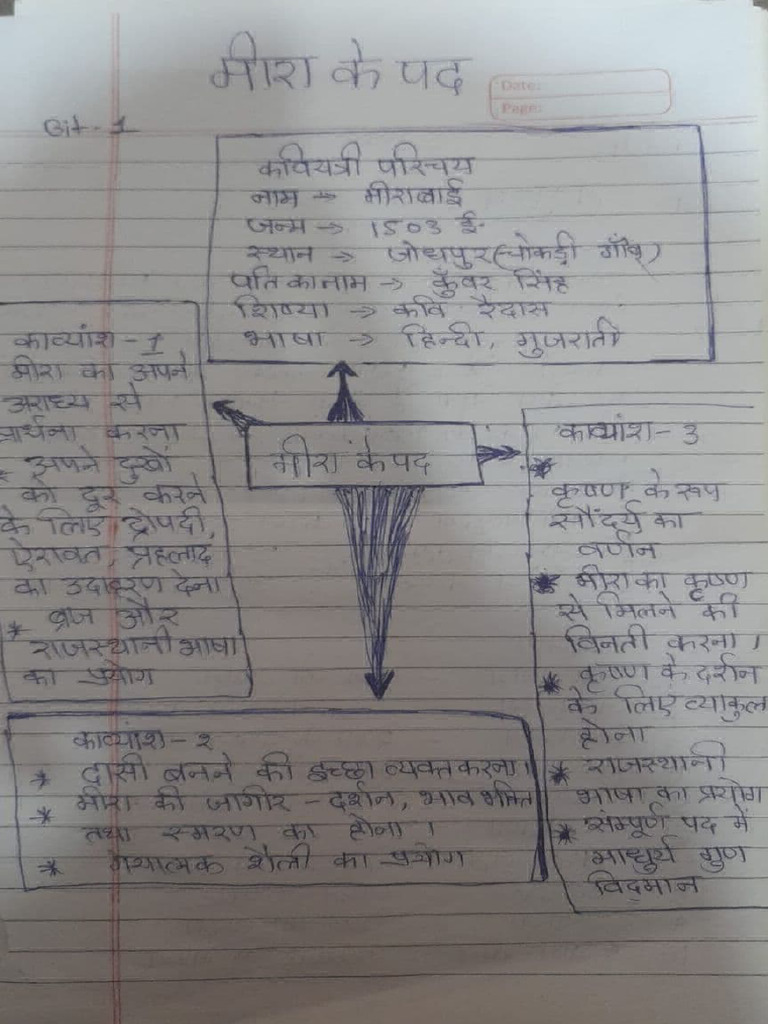 मीरा के पद
Date:
Page:
Bit - 1
कवियत्री परिचय
नाम → मीराबाई
जन्म → 1503 ई.
स्थान → जोधपुर(चोकड़ी गाँव)
पति का नाम → कुँवर सिंह
शिष्या → कवि रैदास
भाषा → हिन्दी, गुजराती
काव्यांश - 1
मीरा का अपने
अराध्य से
प्रार्थना करना
* अपने दुखों
को दूर करने
के लिए द्रोपदी,
ऐरावत, प्रहलाद
का उदाहरण देना
* ब्रज और
राजस्थानी भाषा
का प्रयोग
मीरा के पद
काव्यांश - 3
*
कृष्ण के रूप
सौंदर्य का
वर्णन
* मीरा का कृष्ण
से मिलने की
विनती करना।
* कृष्ण के दर्शन
के लिए व्याकुल
होना
* राजस्थानी
भाषा का प्रयोग
* संम्पूर्ण पद में
माधुर्य गुण
विद्मान
काव्यांश - २
* दासी बनने की इच्छा व्यक्त करना।
* मीरा की जागीर - दर्शन, भाव भक्ति
तथा स्मरण का होना।
* गयात्मक शैली का प्रयोग